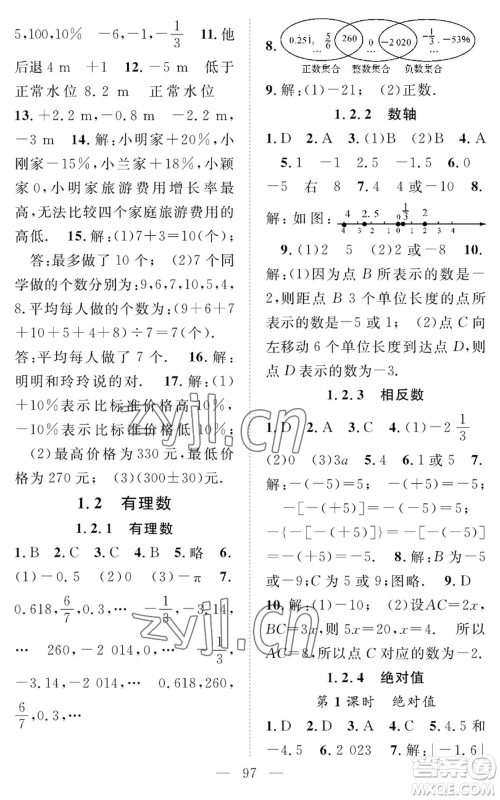 5,100,10%　-6,-1,-1/3　11.他
后退4 m　+1　12.-5 m　正
常水位　8.2 m　正常水位
13.+2.2 m,-0.8 m　-2 m,
-3 m　14.解:小明家+20%,小
刚家-15%,小兰家+16%,小颖
家0,小明家旅游费用的增长率
最高,无法比较四个家庭旅游费用的
高低.　15.解:(1)7+3=10(个)
答:最多做了10个;(2)7个同
学做的个数分别为:9,6,7,10,5,4,
8.平均每人做的个数为:(9+6+
7+10+5+4+8)÷7=7(个).
答:平均每人做了7个.　16.解:
明明和玲玲说的对.　17.解:(1)
+10%表示比标准价格高10%,
-10%表示比标准价格低10%;
(2)最高价格为330元,最低价
格为270元;　(3)(300±30)元.
1.2　有理数
1.2.1　有理数
1.B　2.B　3.C　4.B　5.略　6.
(1)-0.5　(2)0　(3)-π　7.
0.618,6/7,0.3,…　-1/3,-3.14,
…　260,-2 014,0,…　-1/3,
-3.14,-2 014,…　0.618,260,
6/7,0.3,…
8.
0.251, 5/6　260　0,…　-2 020　-1/3,-53%
正数集合　整数集合　负数集合
9.解:(1)-21;　(2)正数.
1.2.2　数轴
1.D　2.A　3.(1)C　(2)D　4.A
5.1　-1　2.5　-1.5　6.0
-5　右　8　7.4或-4　8.
解:如图:
4　2.5　0 1/3　2
-4 -3 -2 -1 0 1 2 3 4
9.(1)2　5　(2)2或-8　10.
解:(1)因为点B所表示的数是-
2,则距点B3个单位长度的点所
表示的数为-5或1;　(2)点C向
左移动6个单位长度到达点D,
则点D表示的数为-3.
1.2.3　相反数
1.D　2.A　3.A　4.C　5.(1)-2 1/3
(2)0　(3)3a　5.4　6.A　7.
解:-(-5)=5;　-(+5)=-5;
-[-(+5)]=5;
-{-[-(+5)]}=-5.　8.
-8　9　-2　9.解:图略.　9.D
10.解:(1)-2;　(2)设AC=2x,
BC=3x,则5x=20,x=4.　所以
AC=8,所以点C表示的数为-2.
1.2.4　绝对值
第1课时　绝对值
1.D　2.A　3.C　4.C　5.4.5和
-4.5　6.2 023　7.解:|-1.6|
97
zyjl.cn
zyjl.cn